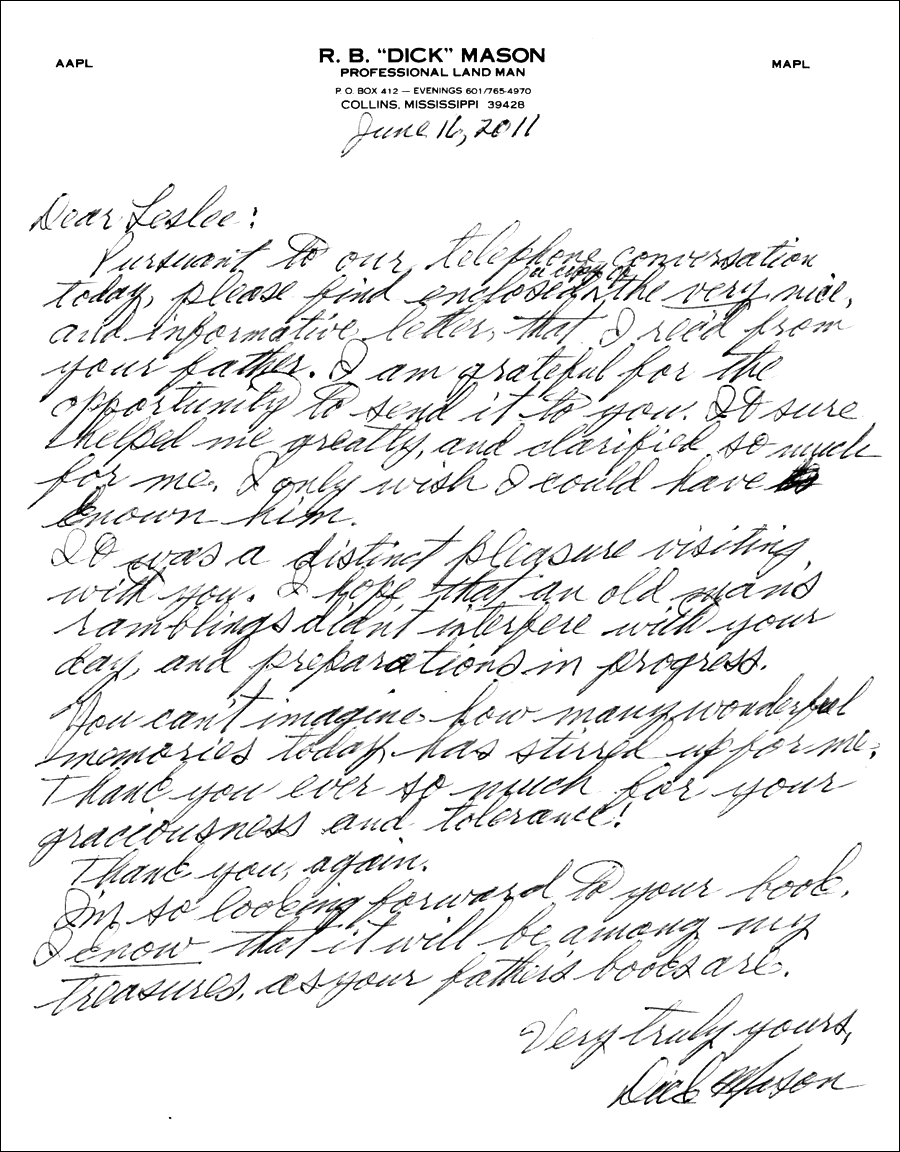 AAPL
R. B. "DICK" MASON
MAPL
PROFESSIONAL LAND MAN
P. O. BOX 412 — EVENINGS 601/765-4970
COLLINS, MISSISSIPPI 39428
June 16, 2011
Dear Leslee:
Pursuant to our telephone conversation
a copy of
today, please find enclosed the very nice,
and informative letter, that I rec'd from
your father. I am grateful for the
opportunity to send it to you. It sure
helped me greatly, and clarified so much
for me. I only wish I could have
known him.
It was a distinct pleasure visiting
with you. I hope that an old man's
ramblings didn't interfere with your
day, and preparations in progress.
You can't imagine how many wonderful
memories today has stirred up for me.
Thank you ever so much for your
graciousness and tolerance!
Thank you, again.
I'm so looking forward to your book.
I know that it will be among my
treasures, as your father's books are.
Very truly yours,
Dick Mason